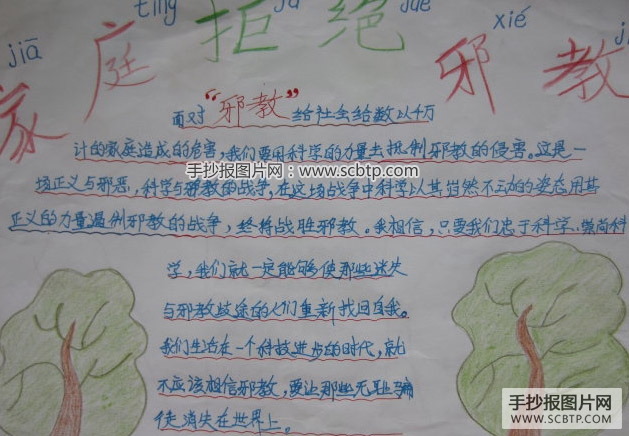 jiā tíng jù jué xié j
家庭拒绝邪教
面对“邪教”给社会给数以千万
计的家庭造成的危害,我们要用科学的力量去抵制邪教的侵害。这是一
场正义与邪恶,科学与邪教的战争,在这场战争中科学以其岿然不动的姿态用其
正义的力量遏制邪教的战争,终将战胜邪教。我相信,只要我们忠于科学、崇尚科
学,我们就一定能够使那些迷失
与邪教歧途的人们重新找回自我。
我们生活在一个科技进步的时代,就
不应该相信邪教,要让那些无耻骗
徒消失在世界上。
手抄报图片网
www.scbtp.com
手抄报图片网
WWW.SCBTP.COM